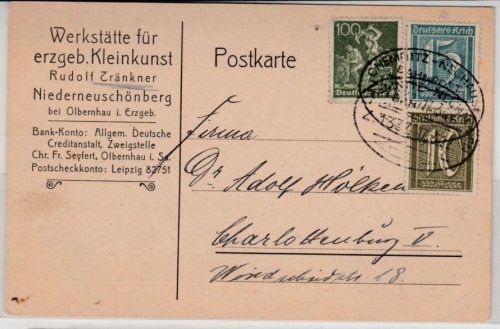 Werkstätte für
erzgeb. Kleinkunst
Rudolf Tränkner
Niederneuschönberg
bei Olbernhau i. Erzgeb.
Bank-Konto: Allgem. Deutsche
Creditanstalt, Zweigstelle
Chr. Fr. Seyfert, Olbernhau i. Sa.
Postscheckkonto: Leipzig 82751
Postkarte
100
Deutsches Reich
15
10
CHEMNITZ
BAHNPOST
Firma
Dr Adolf Hölken
Charlottenburg V.
18.